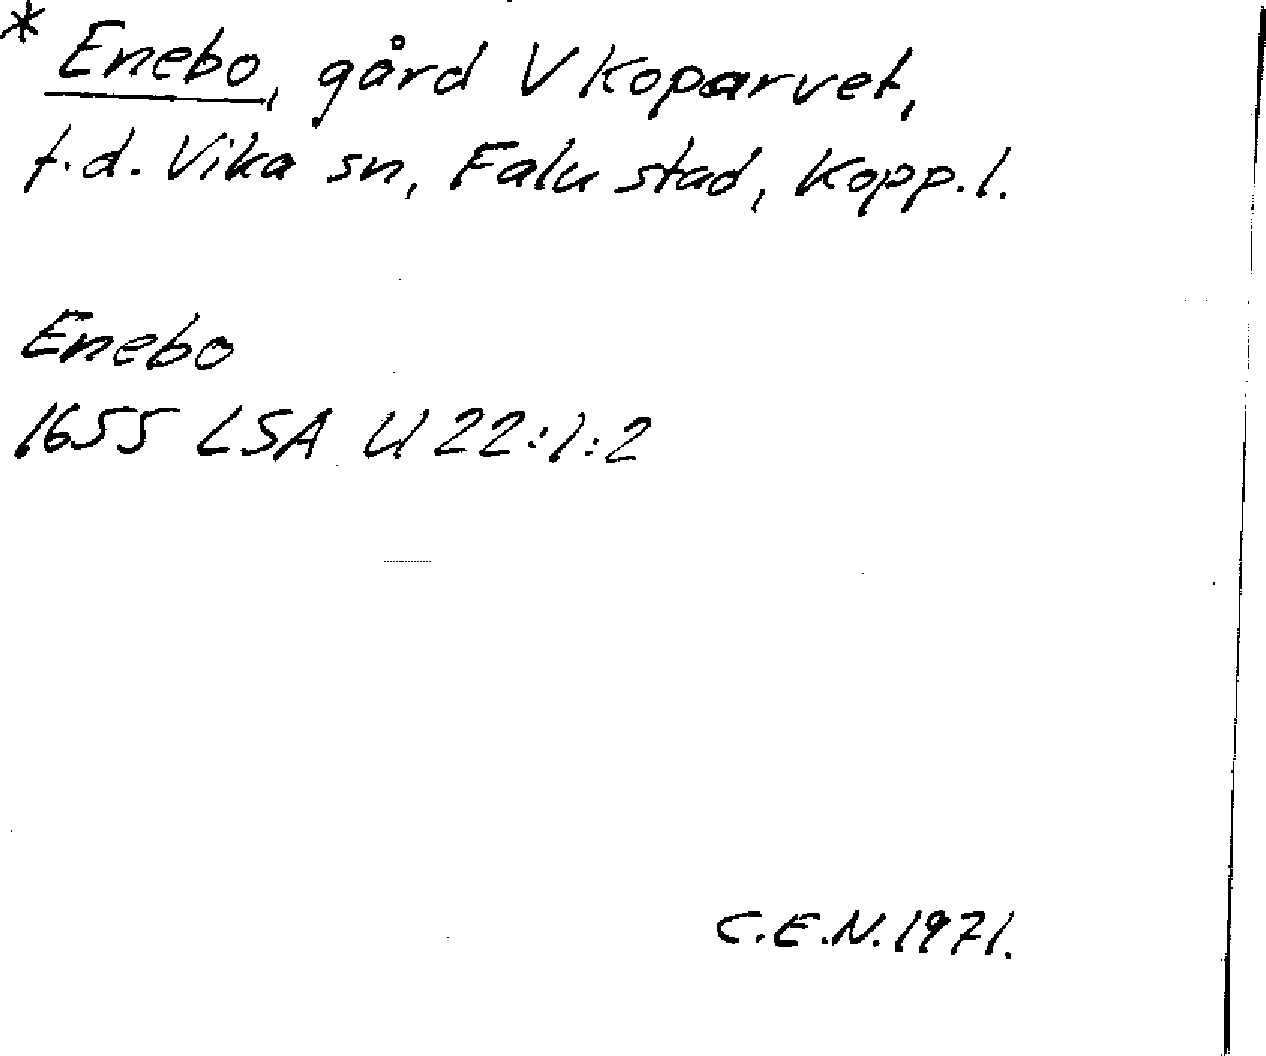 * Enebo, gård V Koparvet,
f.d. Vika sn, Falu stad, Kopp.l.
Enebo
1655 LSA U 22:1:2
C.E.N. 1971.